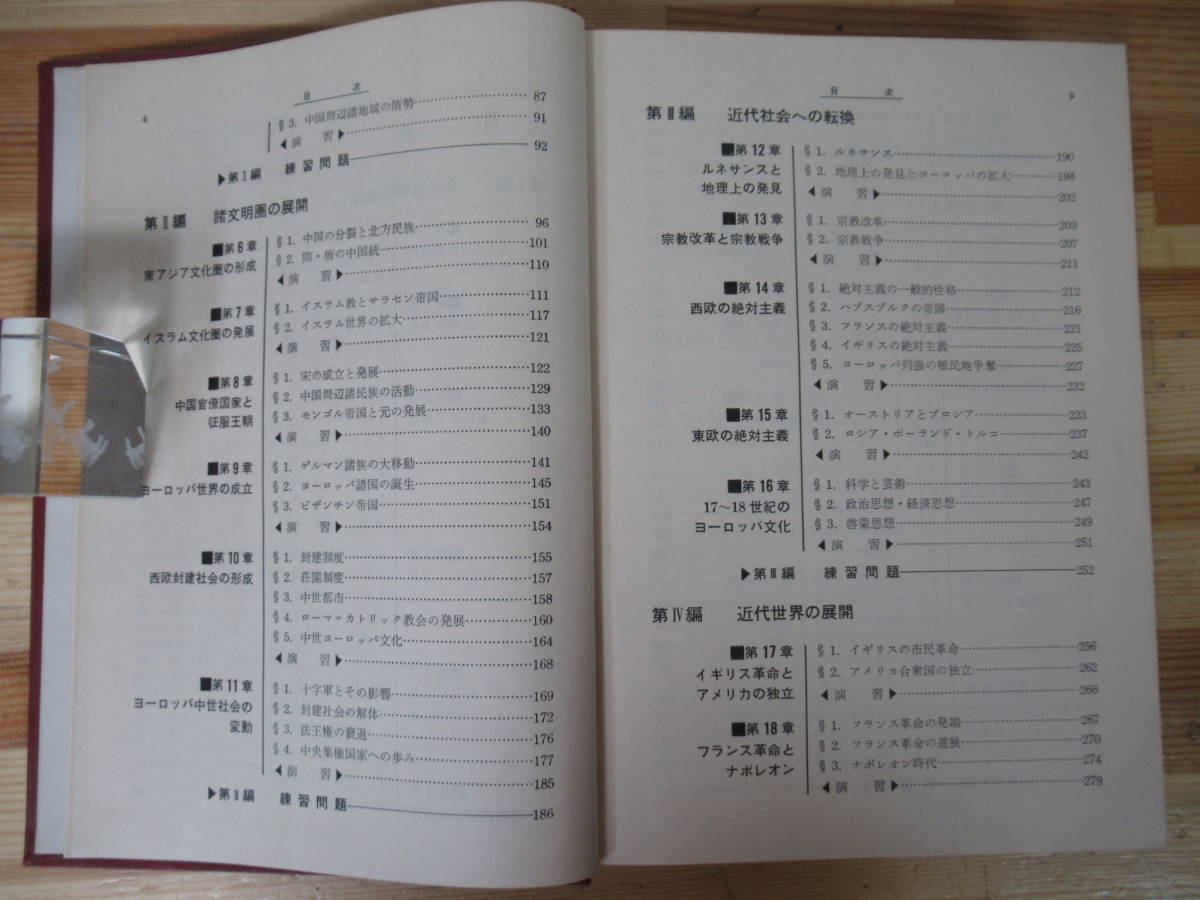 4
目次
§3. 中国周辺諸地域の情勢 87
◀演習▶ 91
▶第Ⅰ編 練習問題 92
第Ⅱ編 諸文明圏の展開
■第6章
東アジア文化圏の形成
§1. 中国の分裂と北方民族 96
§2. 隋・唐の中国統一 101
◀演習▶ 110
■第7章
イスラム文化圏の発展
§1. イスラム教とサラセン帝国 111
§2. イスラム世界の拡大 117
◀演習▶ 121
■第8章
中国官僚国家と
征服王朝
§1. 宋の成立と発展 122
§2. 中国周辺諸民族の活動 129
§3. モンゴル帝国と元の発展 133
◀演習▶ 140
■第9章
ヨーロッパ世界の成立
§1. ゲルマン諸族の大移動 141
§2. ヨーロッパ諸国の誕生 145
§3. ビザンチン帝国 151
◀演習▶ 154
■第10章
西欧封建社会の形成
§1. 封建制度 155
§2. 荘園制度 157
§3. 中世都市 158
§4. ローマ=カトリック教会の発展 160
§5. 中世ヨーロッパ文化 164
◀演習▶ 168
■第11章
ヨーロッパ中世社会の
変動
§1. 十字軍とその影響 169
§2. 封建社会の解体 172
§3. 法王権の衰退 176
§4. 中央集権国家への歩み 177
◀演習▶ 185
▶第Ⅱ編 練習問題 186
目次
5
第Ⅲ編 近代社会への転換
■第12章
ルネサンスと
地理上の発見
§1. ルネサンス 190
§2. 地理上の発見とヨーロッパの拡大 198
◀演習▶ 202
■第13章
宗教改革と宗教戦争
§1. 宗教改革 203
§2. 宗教戦争 207
◀演習▶ 211
■第14章
西欧の絶対主義
§1. 絶対主義の一般的性格 212
§2. ハプスブルクの帝国 216
§3. フランスの絶対主義 221
§4. イギリスの絶対主義 225
§5. ヨーロッパ列強の植民地争奪 227
◀演習▶ 232
■第15章
東欧の絶対主義
§1. オーストリアとプロシア 233
§2. ロシア・ポーランド・トルコ 237
◀演習▶ 242
■第16章
17〜18世紀の
ヨーロッパ文化
§1. 科学と芸術 243
§2. 政治思想・経済思想 247
§3. 啓蒙思想 249
◀演習▶ 251
▶第Ⅲ編 練習問題 252
第Ⅳ編 近代世界の展開
■第17章
イギリス革命と
アメリカの独立
§1. イギリスの市民革命 256
§2. アメリカ合衆国の独立 262
◀演習▶ 266
■第18章
フランス革命と
ナポレオン
§1. フランス革命の発端 267
§2. フランス革命の進展 270
§3. ナポレオン時代 274
◀演習▶ 279